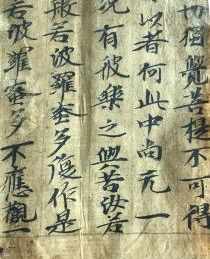 切獨覺菩提不可得
以者何此中尚无一
況有彼樂之與苦汝若
般若波羅蜜多復作是
若波羅蜜多不應觀一